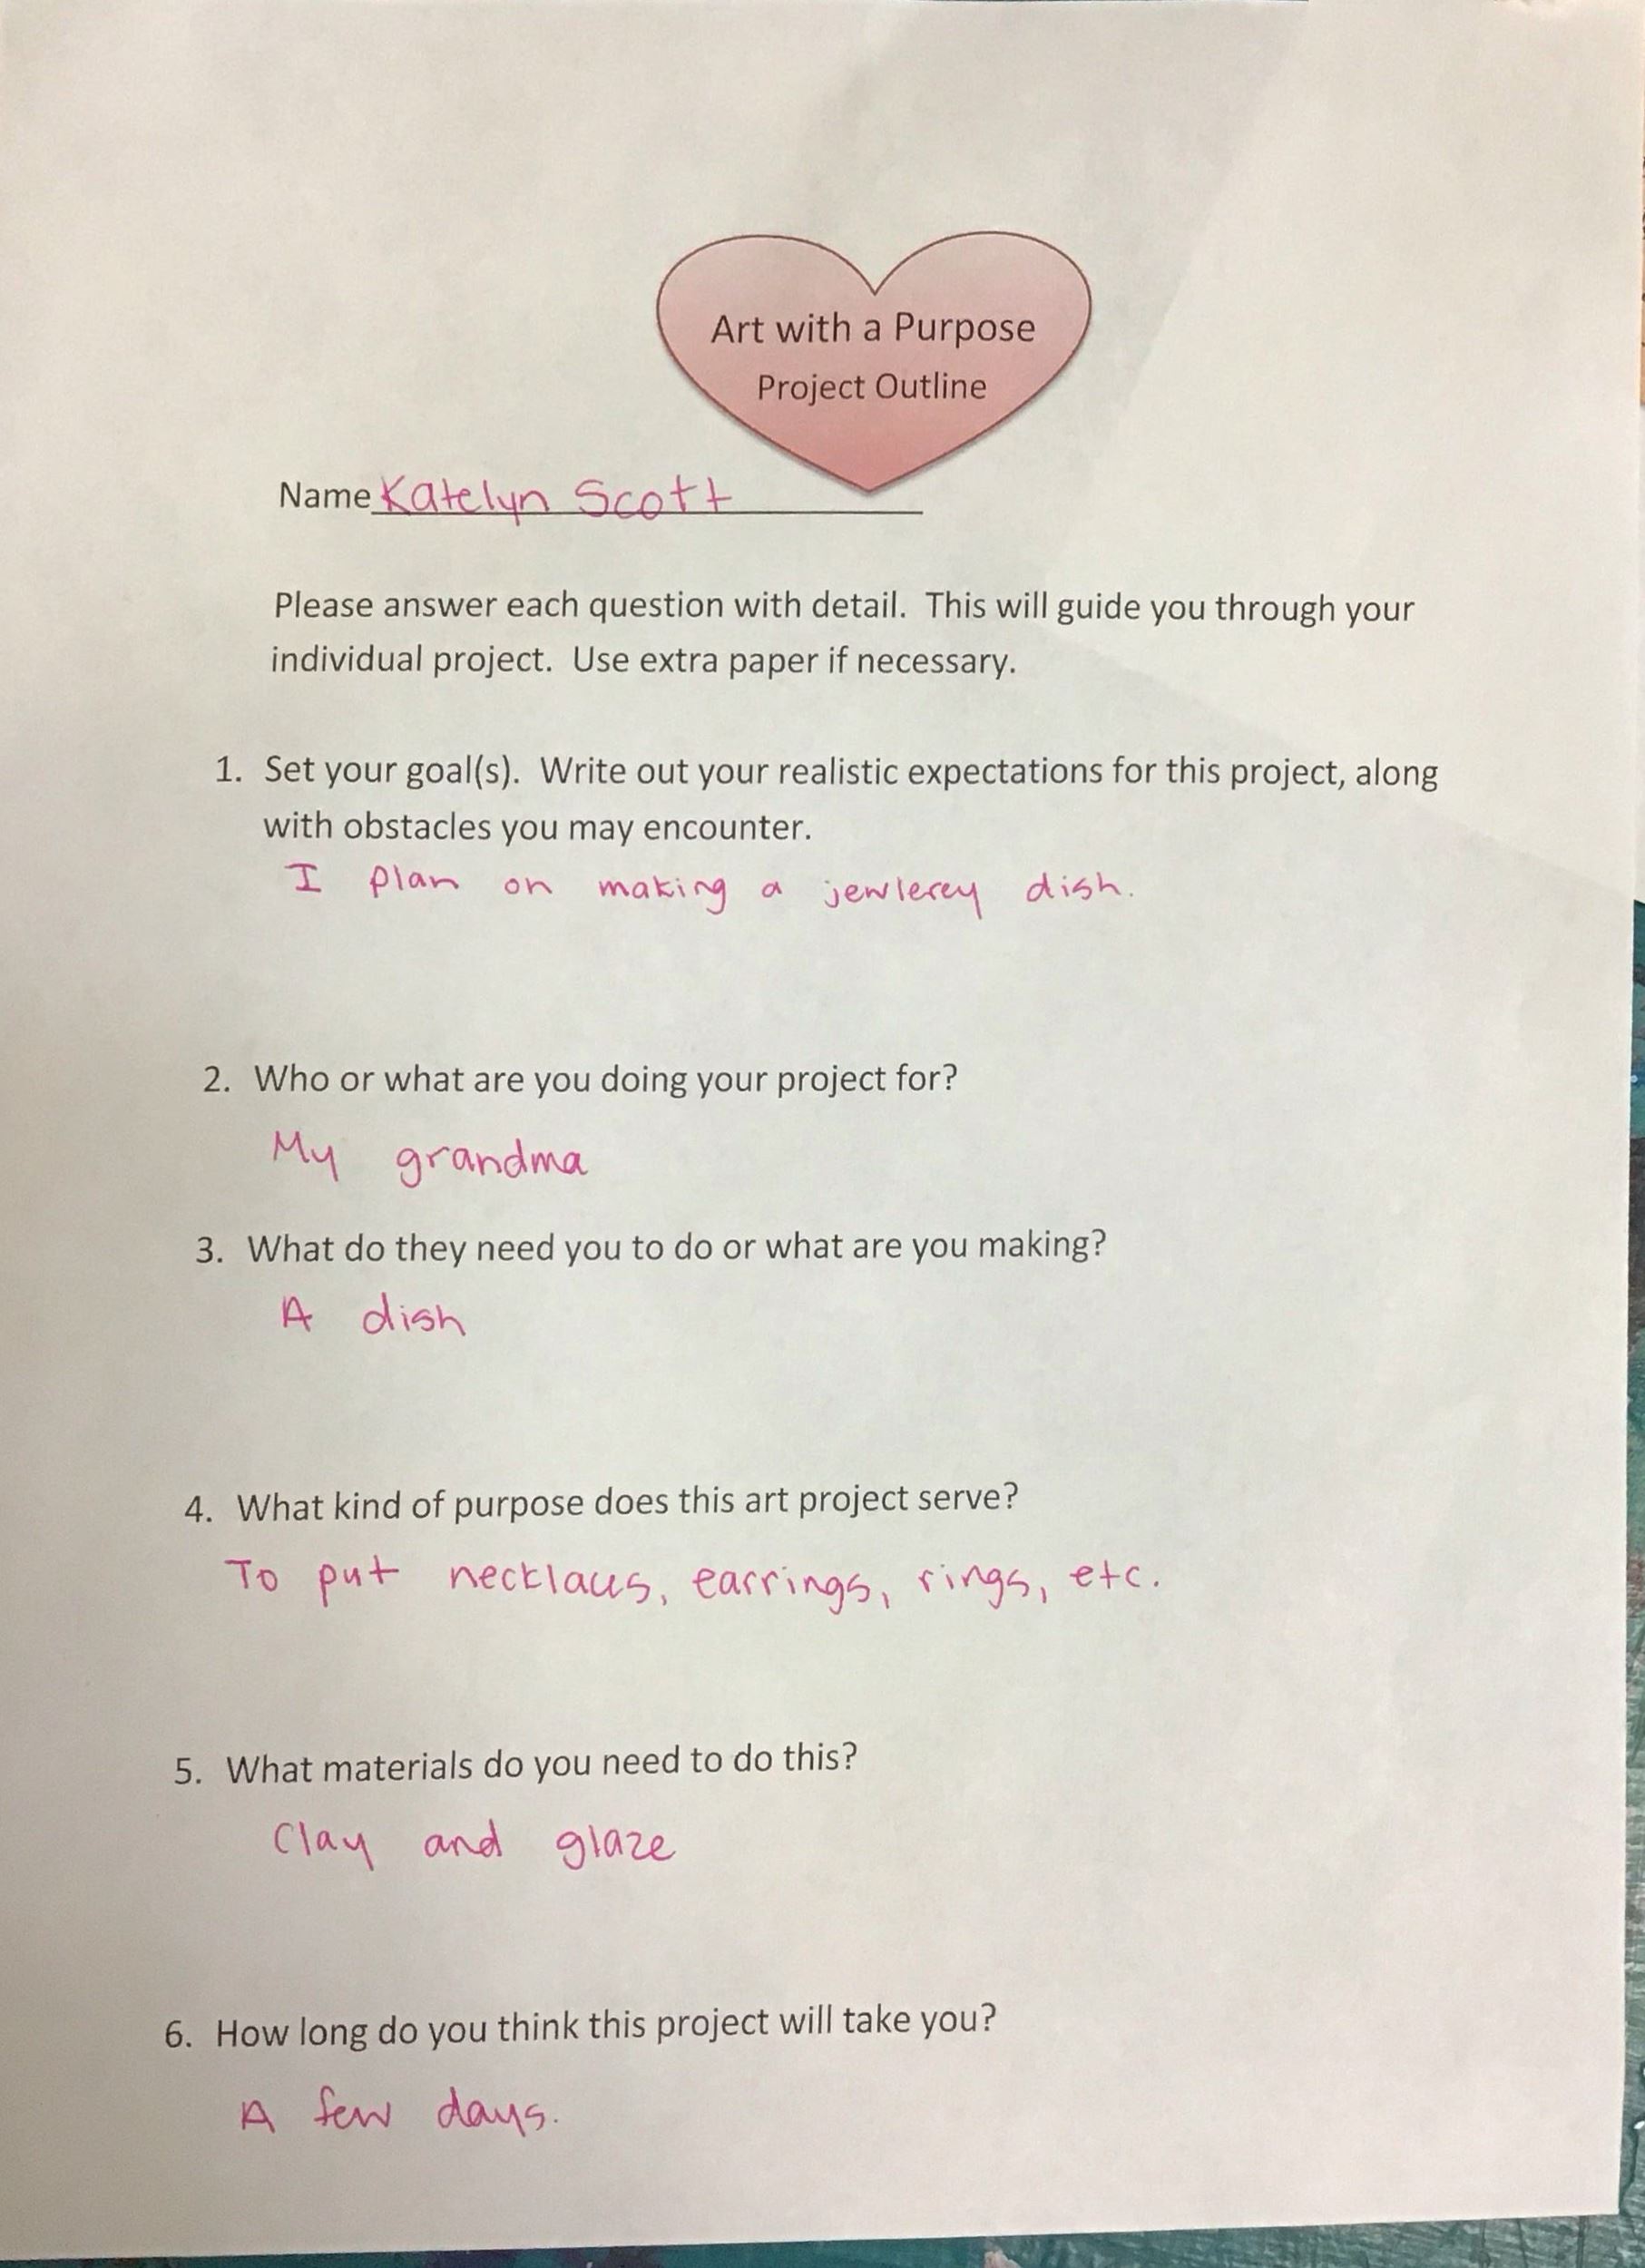 Art with a Purpose
Project Outline
Name Katelyn Scott
Please answer each question with detail. This will guide you through your
individual project. Use extra paper if necessary.
1. Set your goal(s). Write out your realistic expectations for this project, along
with obstacles you may encounter.
I plan on making a jewlerey dish.
2. Who or what are you doing your project for?
My grandma
3. What do they need you to do or what are you making?
A dish
4. What kind of purpose does this art project serve?
To put necklaces, earrings, rings, etc.
5. What materials do you need to do this?
Clay and glaze
6. How long do you think this project will take you?
A few days.